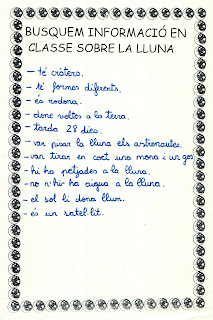 BUSQUEM INFORMACIÓ EN
CLASSE SOBRE LA LLUNA
- té cràters.
- té formes diferents.
- és rodona.
- dona voltes a la terra.
- tarda 28 dies.
- van pisar la lluna els astronautes.
- van tirar en coet una mona i un gos.
- hi ha petjades a la lluna.
- no n'hi-ha aigua a la lluna.
- el sol li dona llum.
- és un satel·lit.